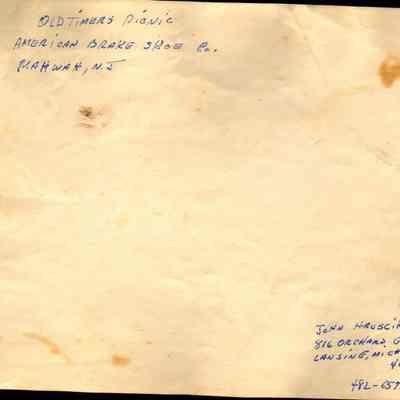 OLD TIMERS PICNIC
AMERICAN BRAKE SHOE Co.
MAHWAH, N.J
JOHN
816 ORCHARD
LANSING,
482-